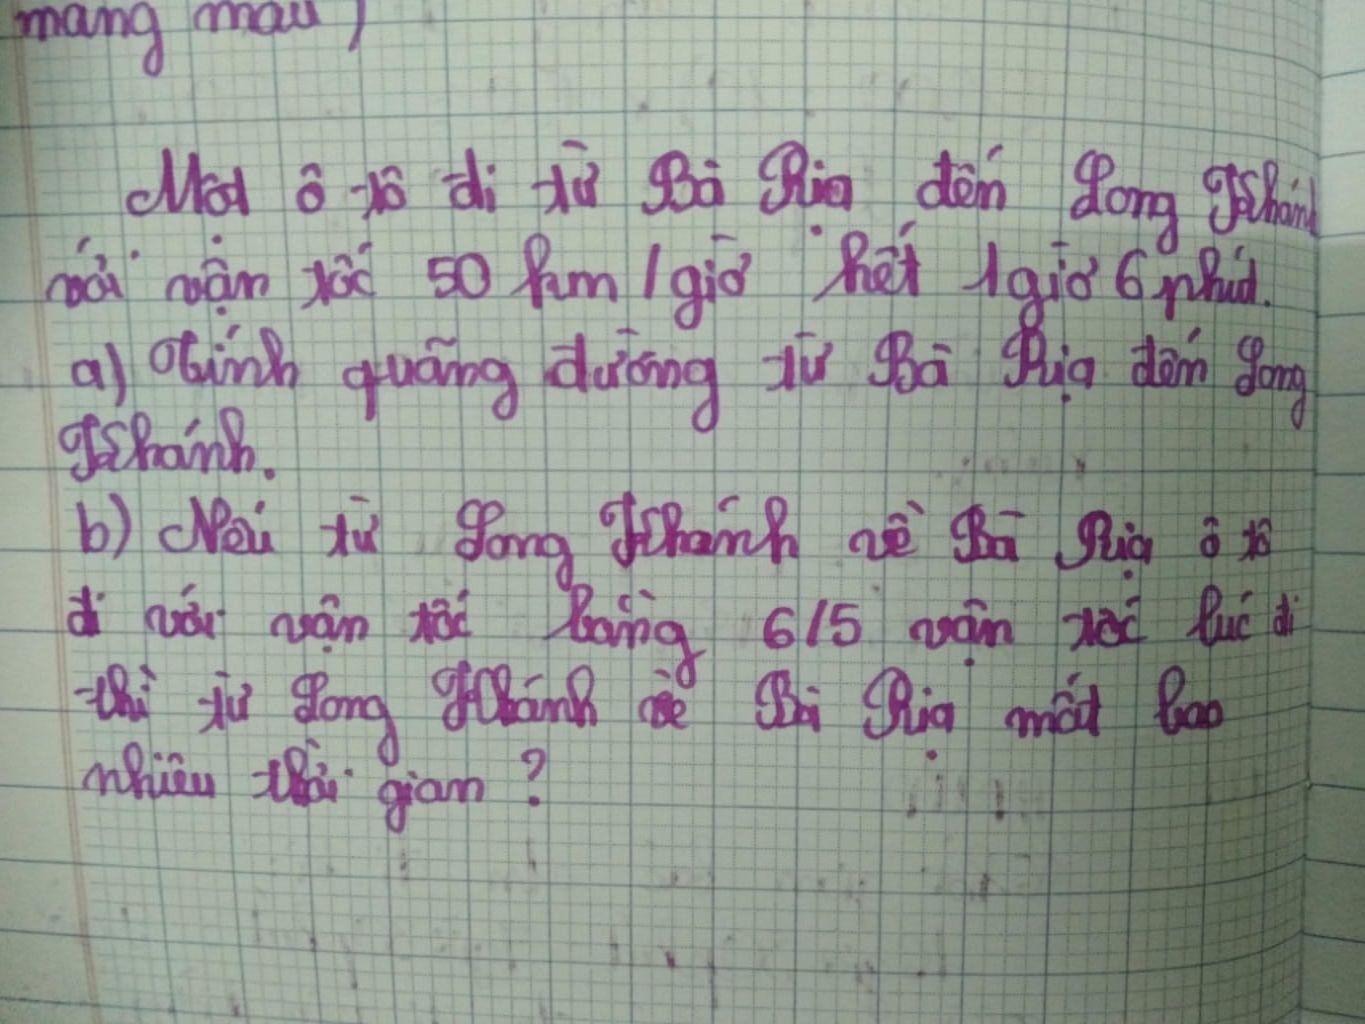 mang mau )
Một ô tô đi từ Bà Rịa đến Long Khánh
với vận tốc 50 km/giờ hết 1 giờ 6 phút.
a) Tính quãng đường từ Bà Rịa đến Long
Khánh.
b) Nếu từ Long Khánh về Bà Rịa ô tô
đi với vận tốc bằng 6/5 vận tốc lúc đi
thì từ Long Khánh về Bà Rịa mất bao
nhiêu thời gian ?